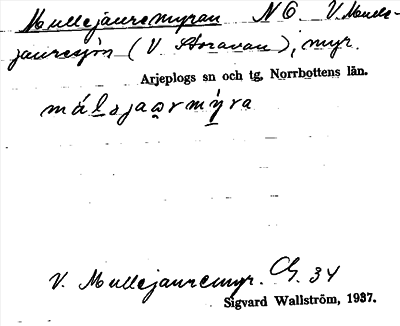 Mullejauremyran NO V. Mulle-
jauresjön (V Storavan), myr.
Arjeplogs sn och tg, Norrbottens län.
málajaạrmýra
V. Mullejauremyr. Gk. 34
Sigvard Wallström, 1937.